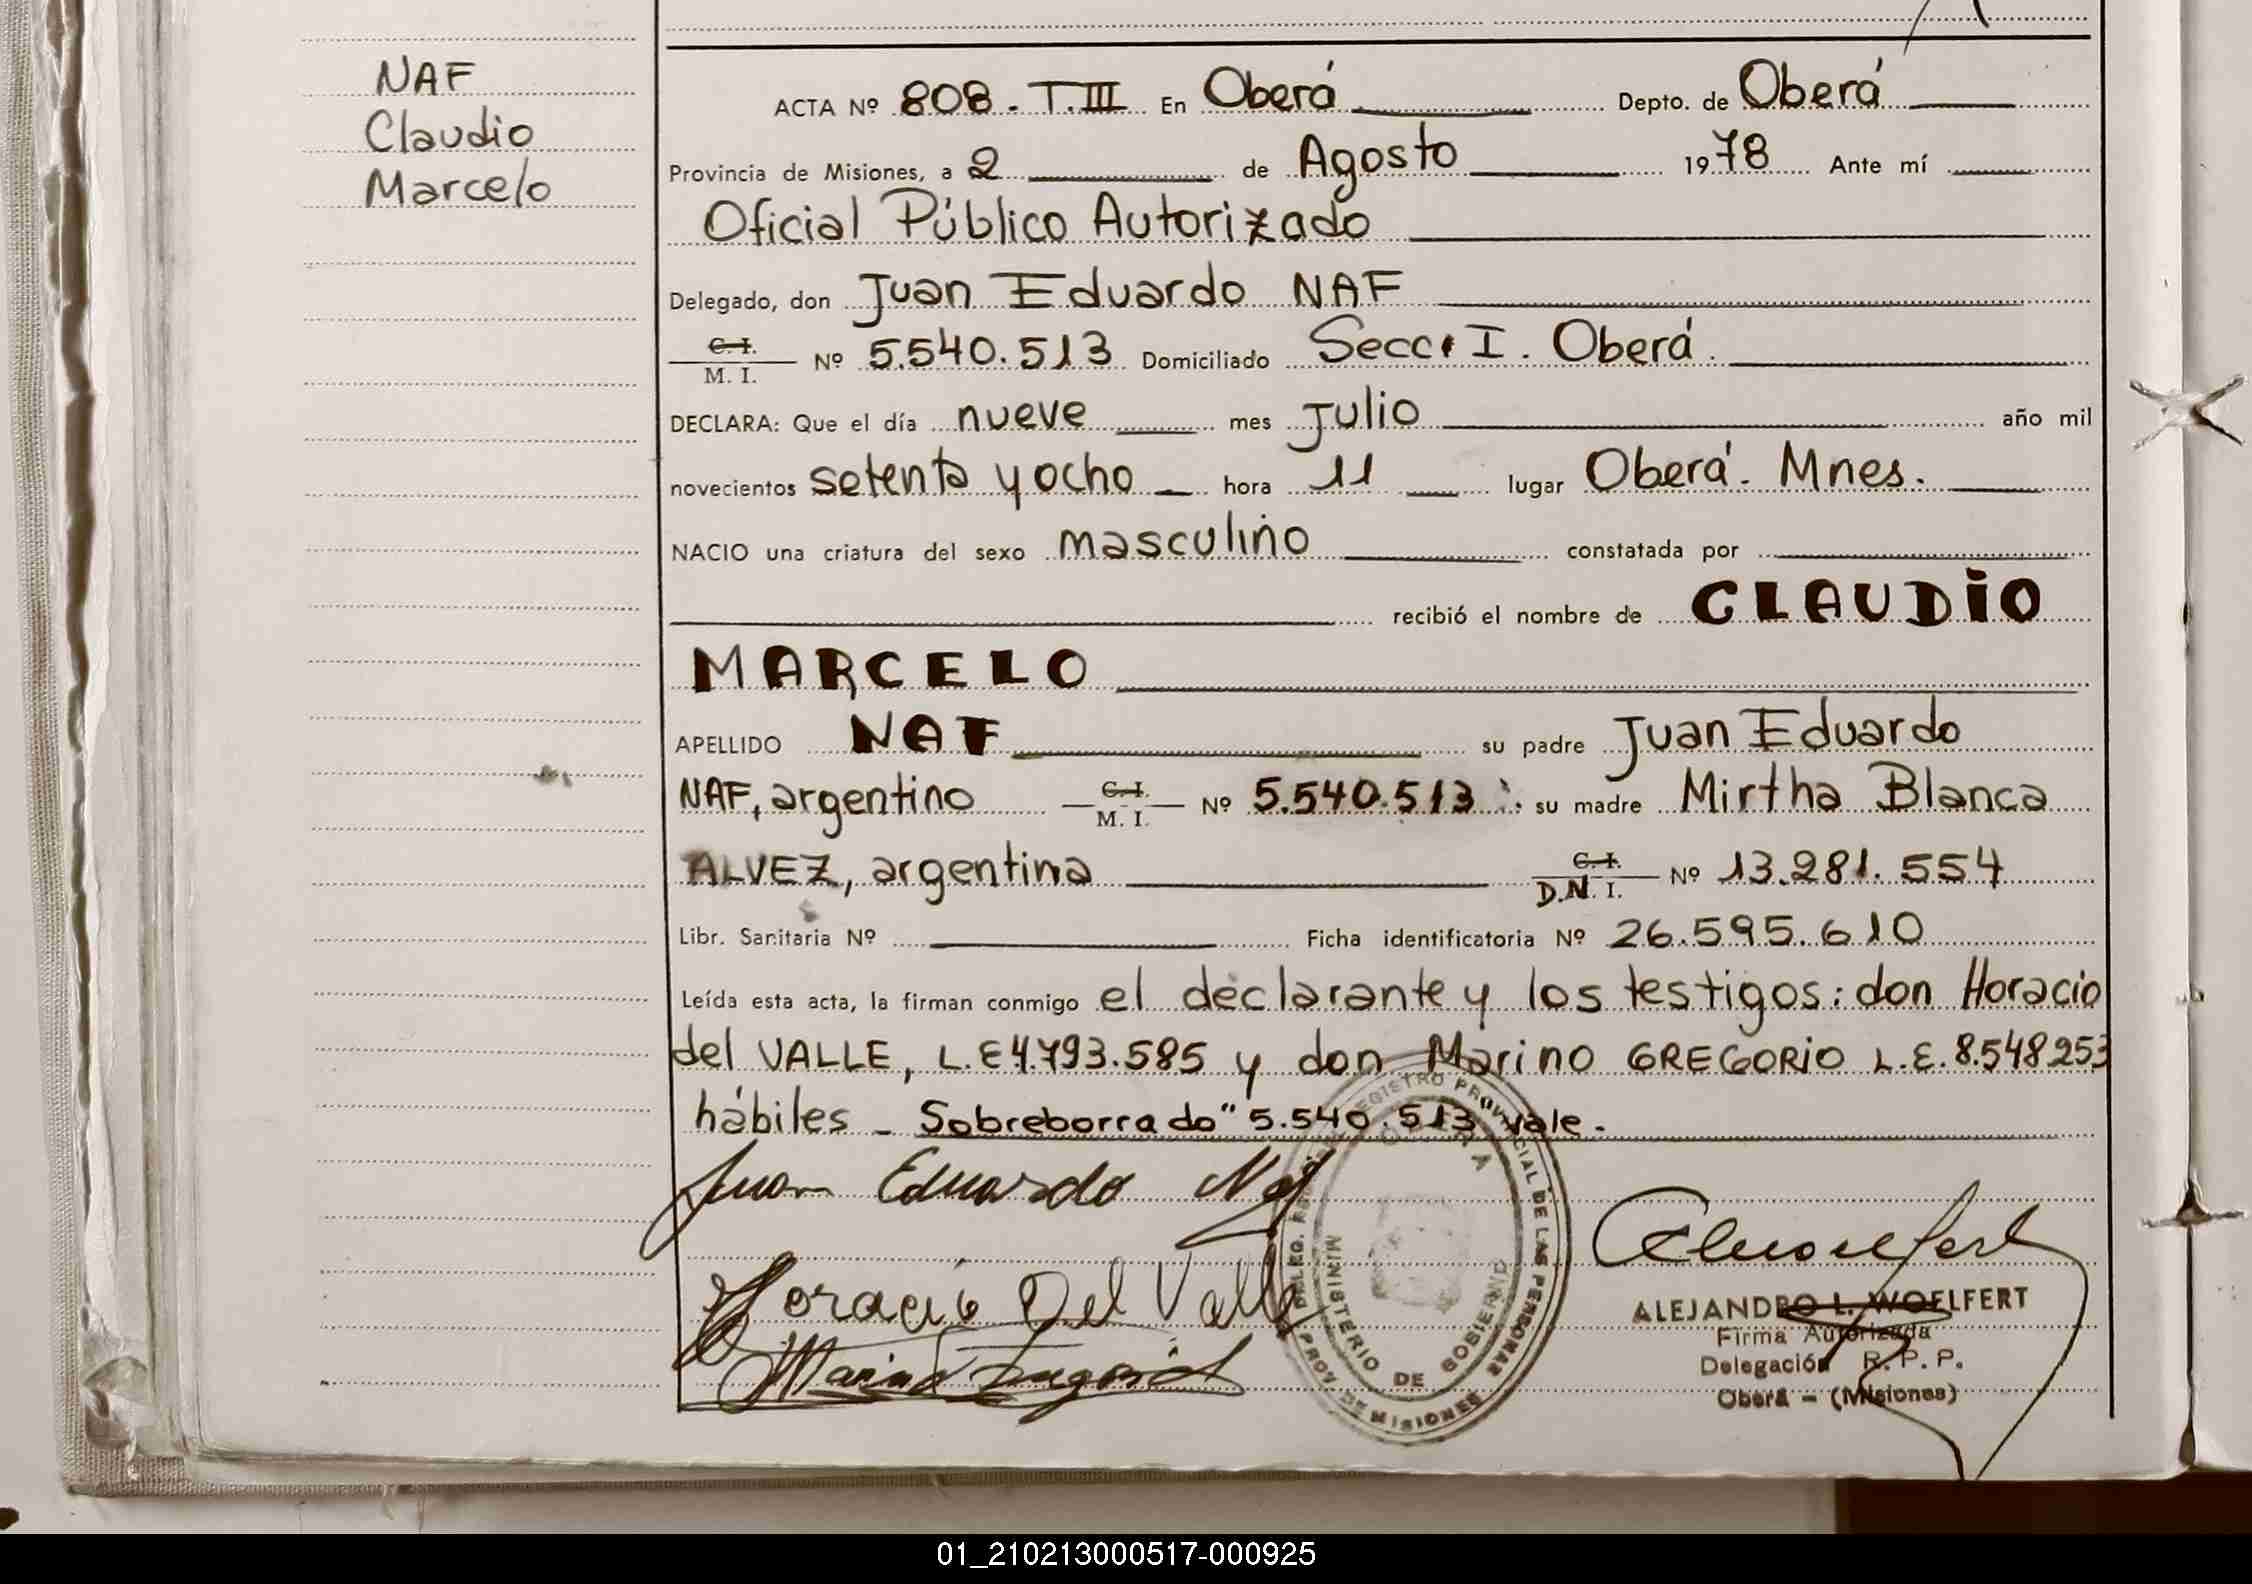 NAF
Claudio
Marcelo
ACTA Nº 808. T.III En Oberá Depto. de Oberá
Provincia de Misiones, a 2 de Agosto 1978 Ante mí
Oficial Público Autorizado
Delegado, don Juan Eduardo NAF
C. I.
M. I. Nº 5.540.513 Domiciliado Secc. I. Oberá.
DECLARA: Que el día nueve mes Julio año mil
novecientos setenta y ocho hora 11 lugar Oberá. Mnes.
NACIO una criatura del sexo masculino constatada por
recibió el nombre de CLAUDIO
MARCELO
APELLIDO NAF su padre Juan Eduardo
NAF, argentino C. I. M. I. Nº 5.540.513 su madre Mirtha Blanca
ALVEZ, argentina C. I. D.N. I. Nº 13.281.554
Libr. Sanitaria Nº Ficha identificatoria Nº 26.595.610
Leída esta acta, la firman conmigo el declarante y los testigos: don Horacio
del VALLE, L.E 4.793.585 y don Marino GREGORIO L.E. 8.548253
hábiles _ Sobreborrado "5.540.513 vale.
Juan Eduardo Naf
Horacio Del Valle
Marino Gregorio
REGISTRO PROVINCIAL DE LAS PERSONAS
PROV. DE MISIONES
MINISTERIO DE GOBIERNO
OBERA
ALEJANDRO L. WOELFERT
Firma Autorizada
Delegación R. P. P.
Oberá - (Misiones)
01_210213000517-000925